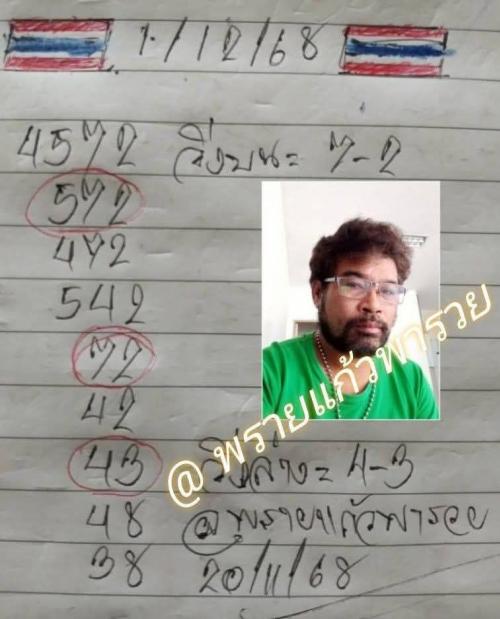 1/12/68
4572 วิ่งบน= 7-2
572
472
542
72
42
43 วิ่งล่าง= 4-3
48 @พรายแก้วพารวย
38 20/11/68
@พรายแก้วพารวย